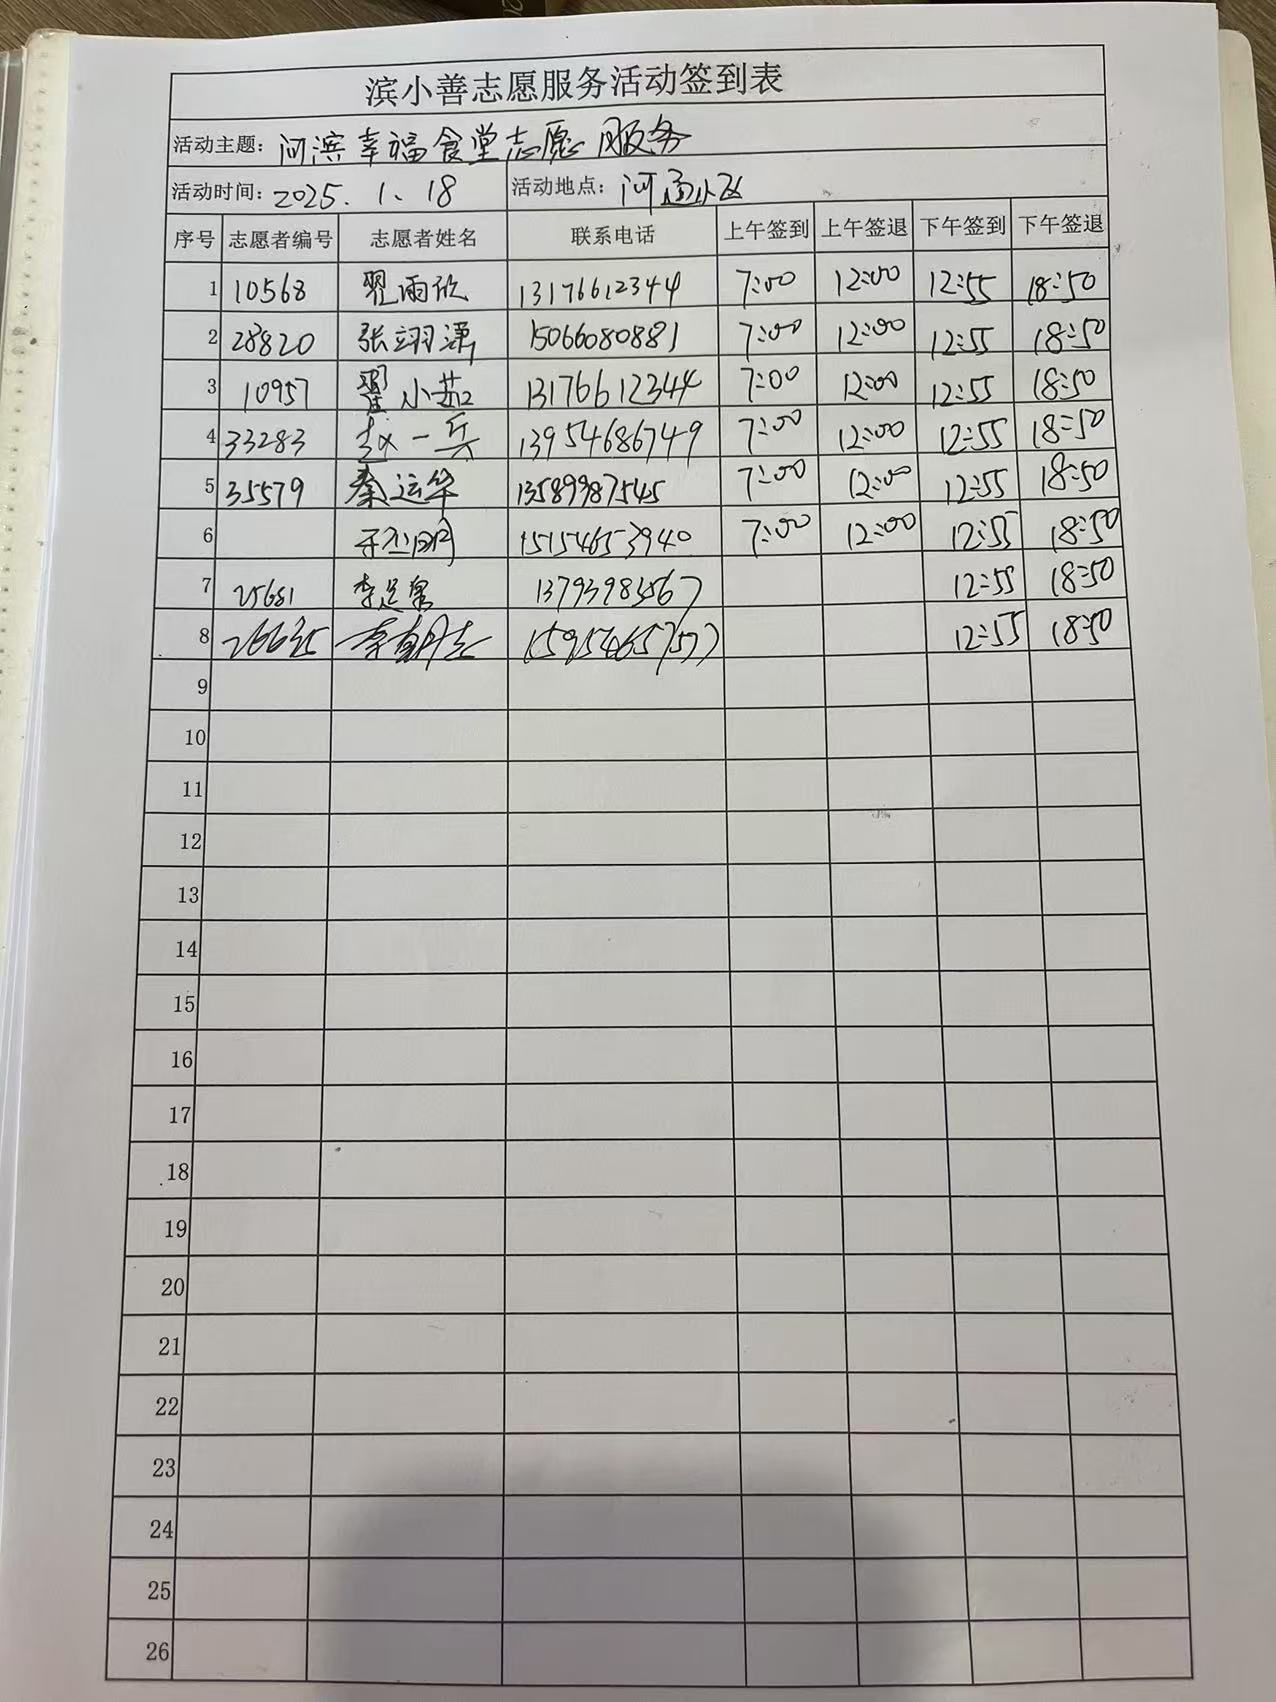 滨小善志愿服务活动签到表
活动主题: 河滨幸福食堂志愿服务
活动时间: 2025.1.18 活动地点:
序号 志愿者编号 志愿者姓名 联系电话 上午签到 上午签退 下午签到 下午签退
1 10568 翟雨欣 13176612344 7:00 12:00 12:55 18:50
2 28820 张翊潇 15066080881 7:00 12:00 12:55 18:50
3 10957 翟小茹 13176612344 7:00 12:00 12:55 18:50
4 33283 赵一兵 13954686749 7:00 12:00 12:55 18:50
5 35579 秦运华 13589987545 7:00 12:00 12:55 18:50
6 15154653940 7:00 12:00 12:55 18:50
7 25681 李 13793983567 12:55 18:50
8 李 12:55 18:50
9
10
11
12
13
14
15
16
17
18
19
20
21
22
23
24
25
26